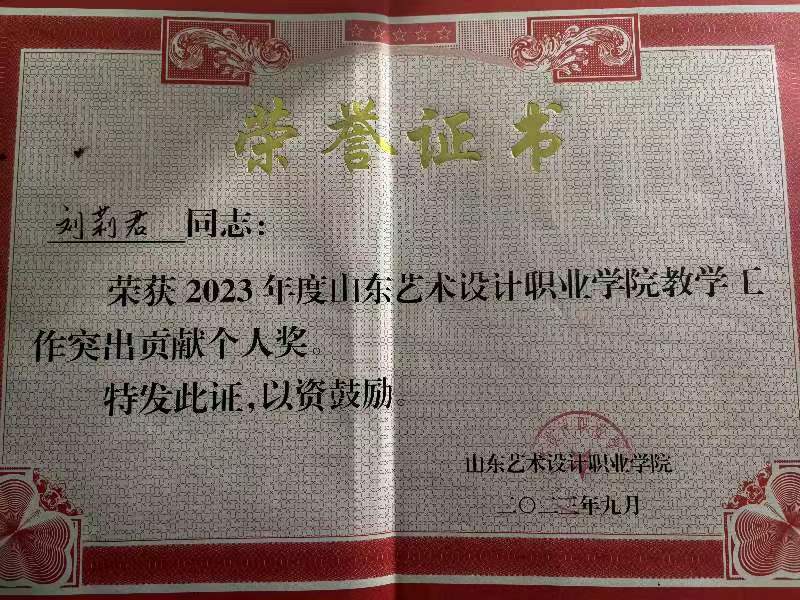 荣誉证书
刘莉君 同志：
荣获2023年度山东艺术设计职业学院教学工
作突出贡献个人奖。
特发此证，以资鼓励。
山东艺术设计职业学院
二〇二三年九月